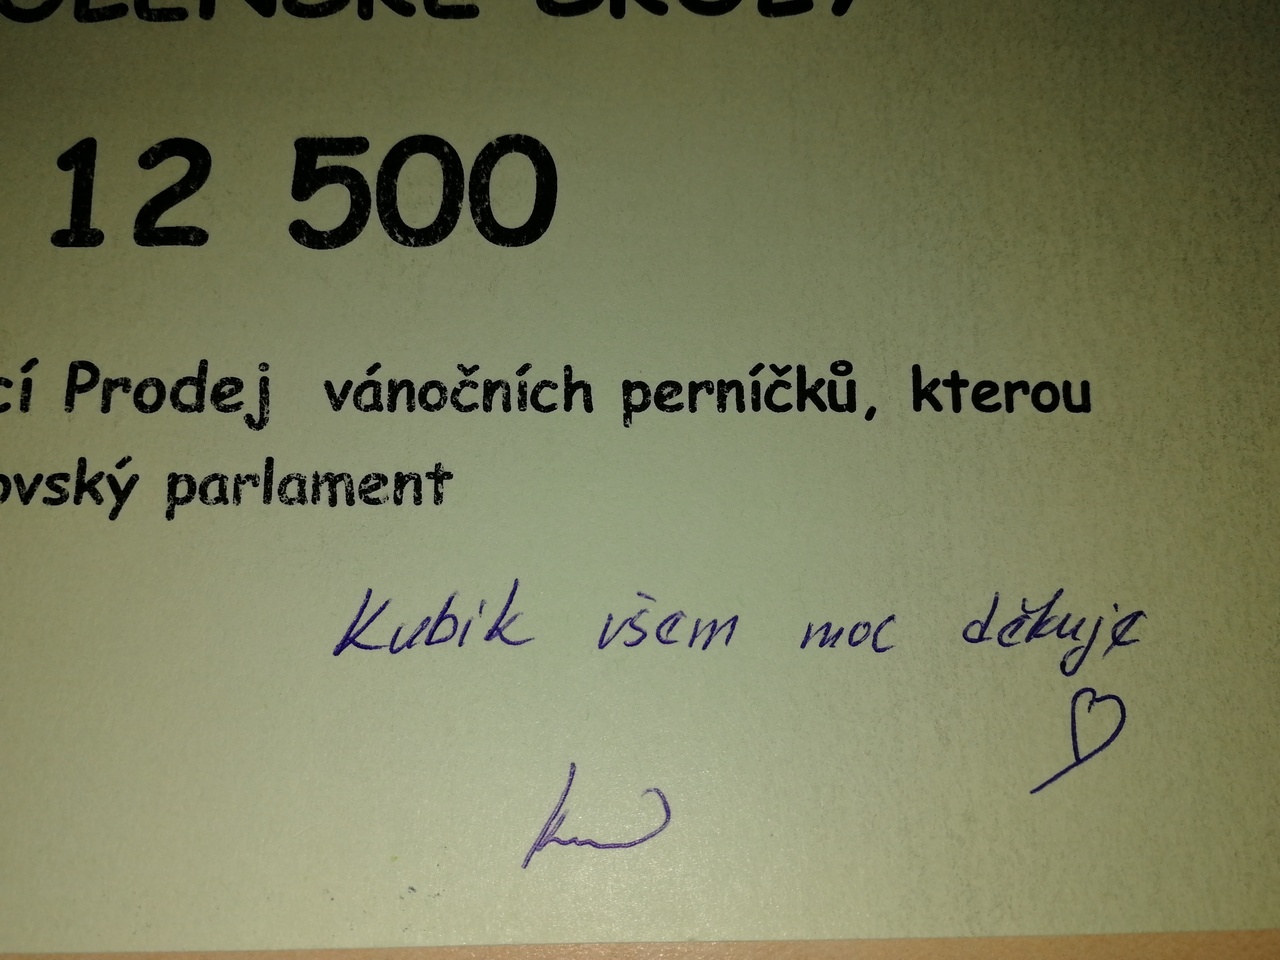 12 500
cí Prodej vánočních perníčků, kterou
ovský parlament
Kubík všem moc děkuje